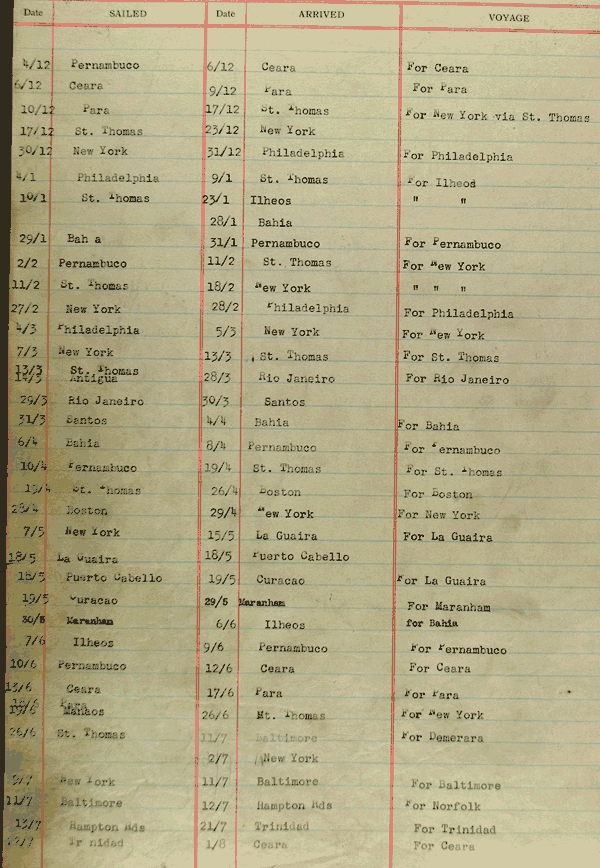 Date SAILED Date ARRIVED VOYAGE
4/12 Pernambuco 6/12 Ceara For Ceara
6/12 Ceara 9/12 Para For Para
10/12 Para 17/12 St. Thomas For New York via St. Thomas
17/12 St. Thomas 23/12 New York
30/12 New York 31/12 Philadelphia For Philadelphia
4/1 Philadelphia 9/1 St. Thomas For Ilheos
10/1 St. Thomas 23/1 Ilheos " "
28/1 Bahia
29/1 Bah a 31/1 Pernambuco For Pernambuco
2/2 Pernambuco 11/2 St. Thomas For New York
11/2 St. Thomas 18/2 New York " " "
27/2 New York 28/2 Philadelphia For Philadelphia
4/3 Philadelphia 5/3 New York For New York
7/3 New York 13/3 St. Thomas For St. Thomas
13/3 St. Thomas
14/3 Antigua 28/3 Rio Janeiro For Rio Janeiro
29/3 Rio Janeiro 30/3 Santos
31/3 Santos 4/4 Bahia For Bahia
6/4 Bahia 8/4 Pernambuco For Pernambuco
10/4 Pernambuco 19/4 St. Thomas For St. Thomas
19/4 St. Thomas 26/4 Boston For Boston
28/4 Boston 29/4 New York For New York
7/5 New York 15/5 La Guaira For La Guaira
18/5 La Guaira 18/5 Puerto Cabello
18/5 Puerto Cabello 19/5 Curacao For La Guaira
19/5 Curacao 29/5 Maranham For Maranham
30/5 Maranham 6/6 Ilheos for Bahia
7/6 Ilheos 9/6 Pernambuco For Pernambuco
10/6 Pernambuco 12/6 Ceara For Ceara
13/6 Ceara 17/6 Para For Para
18/6 Para
19/6 Manaos 26/6 St. Thomas For New York
26/6 St. Thomas 11/7 Baltimore For Demerara
2/7 New York
9/7 New York 11/7 Baltimore For Baltimore
11/7 Baltimore 12/7 Hampton Rds For Norfolk
13/7 Hampton Rds 21/7 Trinidad For Trinidad
Tr nidad 1/8 Ceara For Ceara